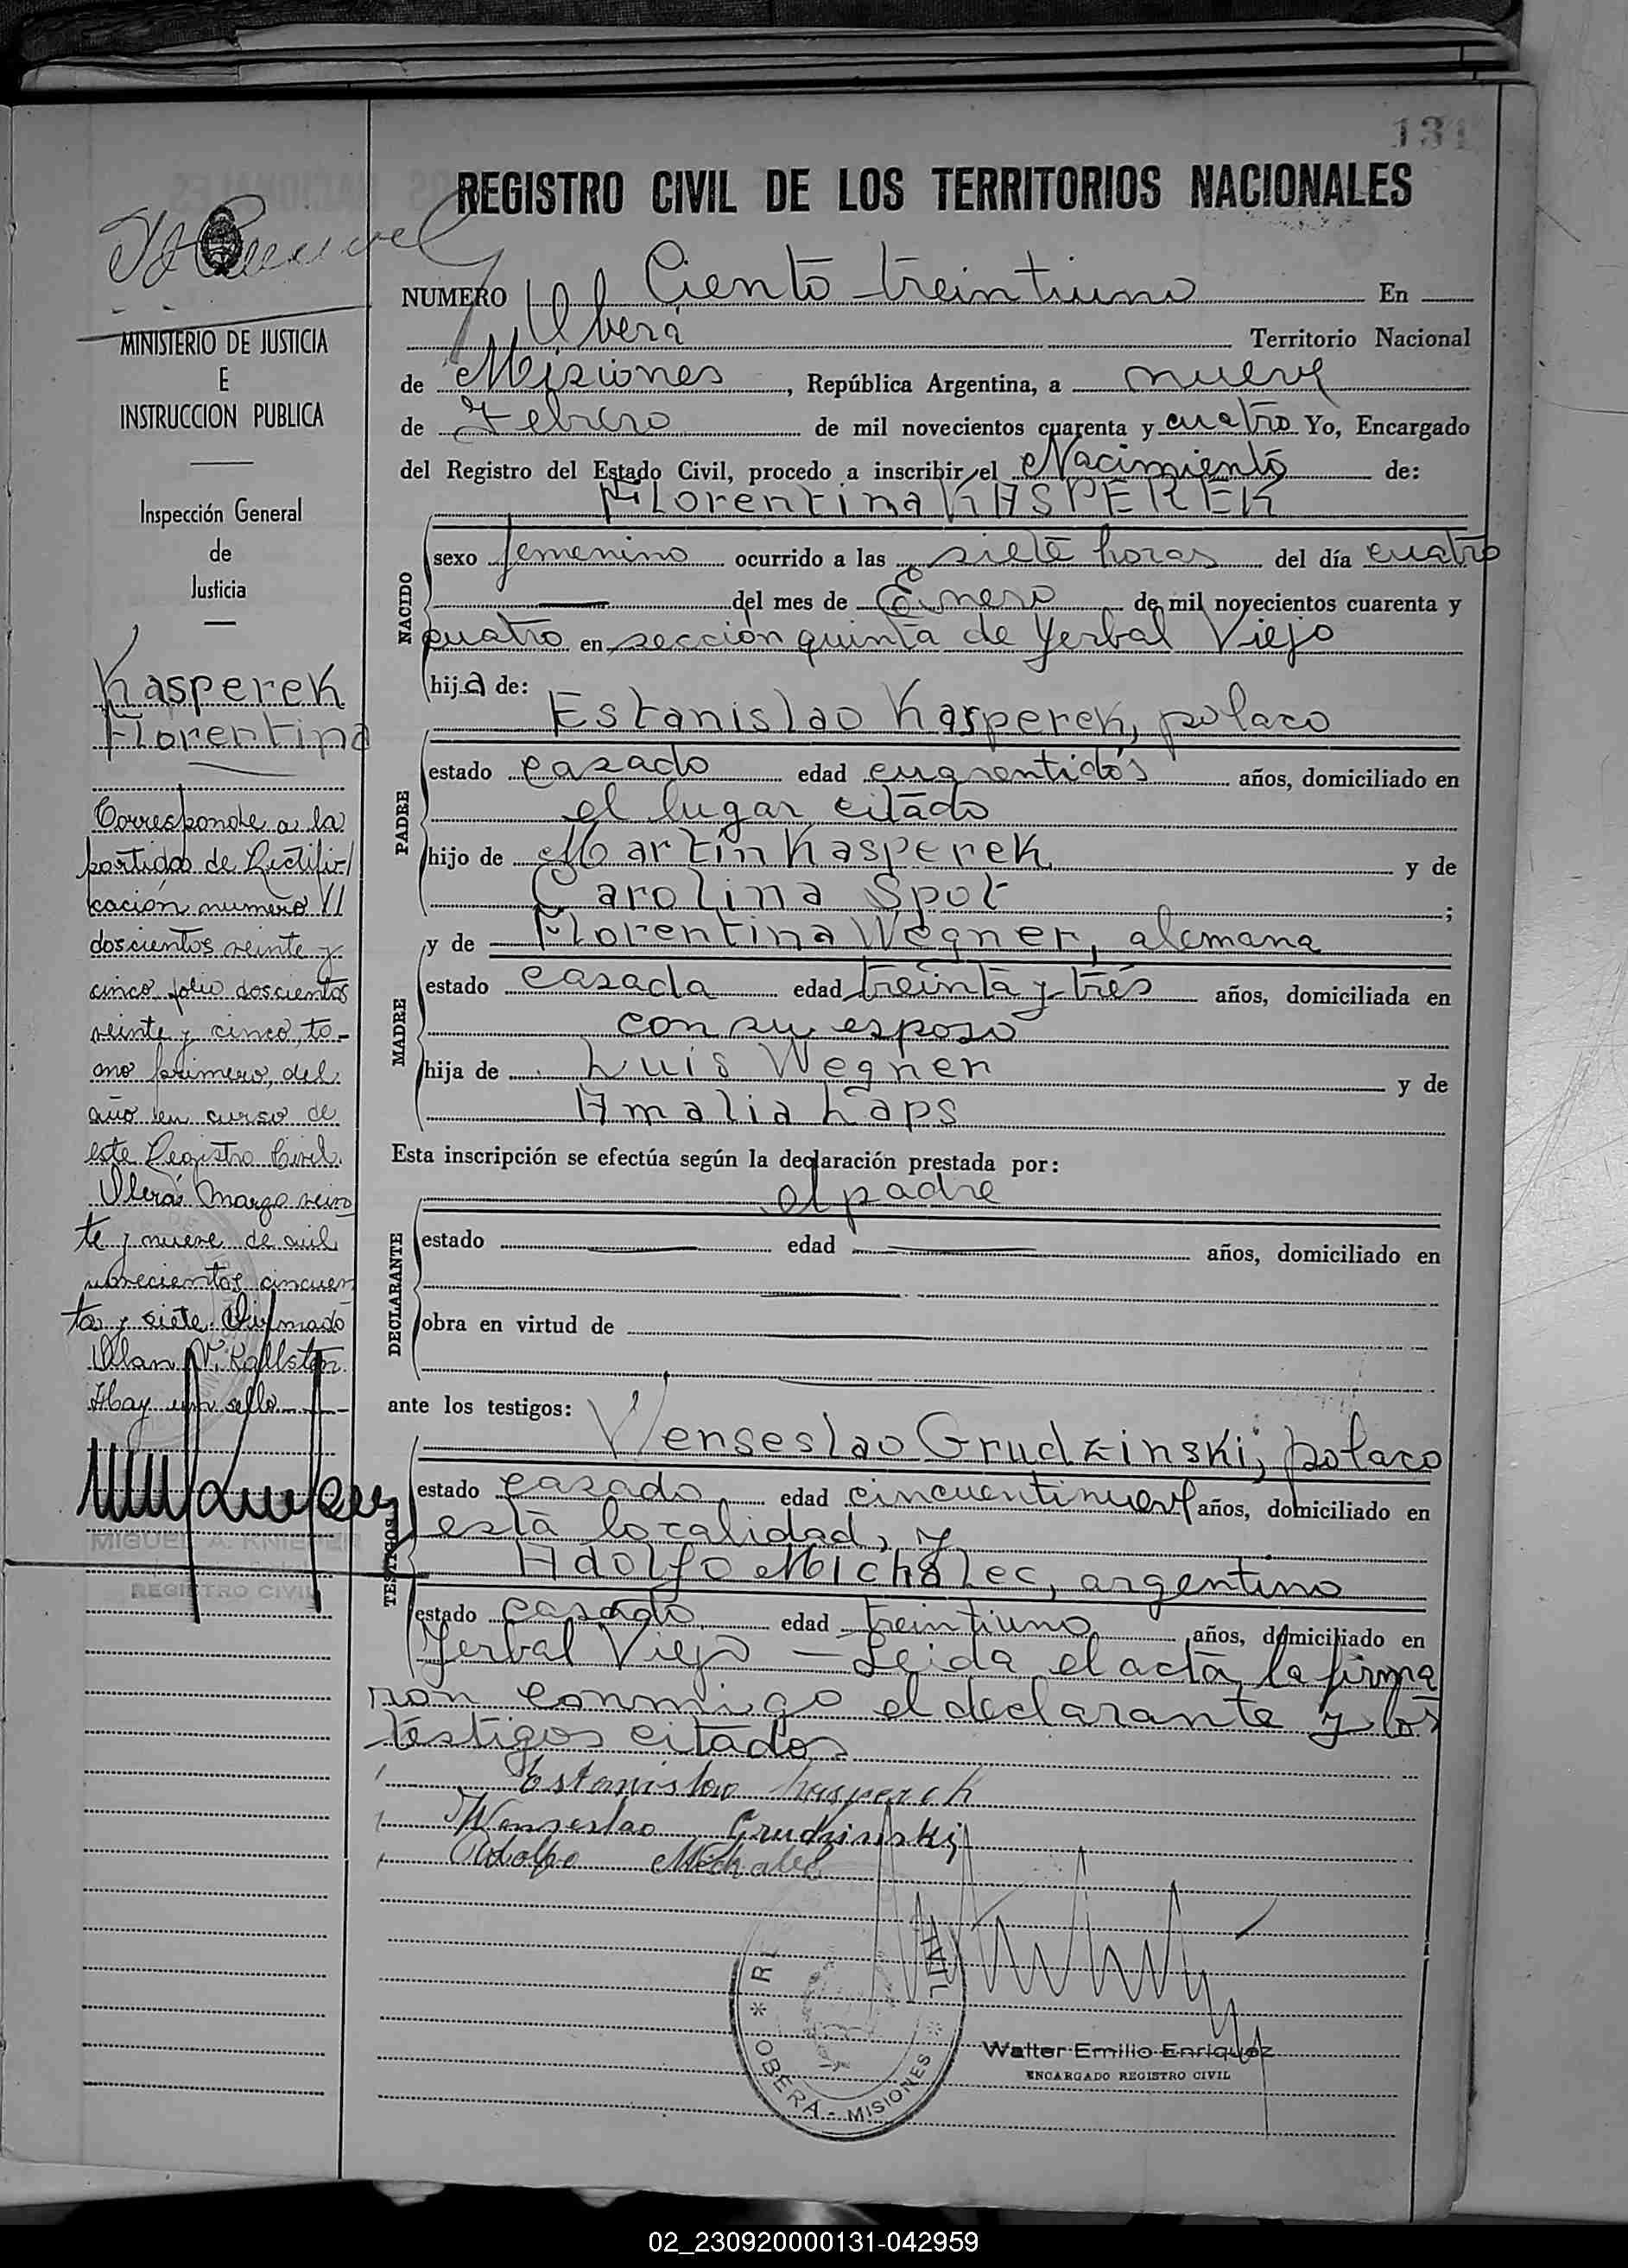 131
REGISTRO CIVIL DE LOS TERRITORIOS NACIONALES
NUMERO Ciento treintiuno En
Oberá Territorio Nacional
de Misiones, República Argentina, a nueve
de Febrero de mil novecientos cuarenta y cuatro Yo, Encargado
del Registro del Estado Civil, procedo a inscribir el Nacimiento de:
Florentina KASPEREK
NACIDO
sexo femenino ocurrido a las siete horas del día cuatro
del mes de Enero de mil novecientos cuarenta y
cuatro en sección quinta de Yerbal Viejo
hija de:
Estanislao Kasperek, polaco
PADRE
estado casado edad cuarentidós años, domiciliado en
el lugar citado
hijo de Martín Kasperek y de
Carolina Spot;
y de Florentina Wegner, alemana
MADRE
estado casada edad treinta y tres años, domiciliada en
con su esposo
hija de Luis Wegner y de
Amalia Kaps
Esta inscripción se efectúa según la declaración prestada por:
el padre
DECLARANTE
estado edad años, domiciliado en
obra en virtud de
ante los testigos:
Venseslao Grudzinski, polaco
TESTIGOS
estado casado edad cincuentinueve años, domiciliado en
esta localidad, y
Adolfo Michalec, argentino
estado casado edad treintiuno años, domiciliado en
Yerbal Viejo — Leida el acta, la firma
ron conmigo el declarante y los
testigos citados
Estanislao Kasperek
Wenseslao Grudzinski
Adolfo Michalec
OBERA - MISIONES
Walter Emilio Enriquez
ENCARGADO REGISTRO CIVIL
MINISTERIO DE JUSTICIA
E
INSTRUCCION PUBLICA
Inspección General
de
Justicia
Kasperek
Florentina
Corresponde a la
partida de Rectifi-
cación numero
doscientos veinte y
cinco folio doscientos
veinte y cinco, to-
mo primero, del
año en curso de
este Registro Civil.
Oberá, Marzo vein
te y nueve de mil
novecientos cincuen
ta y siete. Firmado
Olan V. Kallsten
Hay un sello
MIGUEL A. KNIEPER
REGISTRO CIVIL
02_230920000131-042959